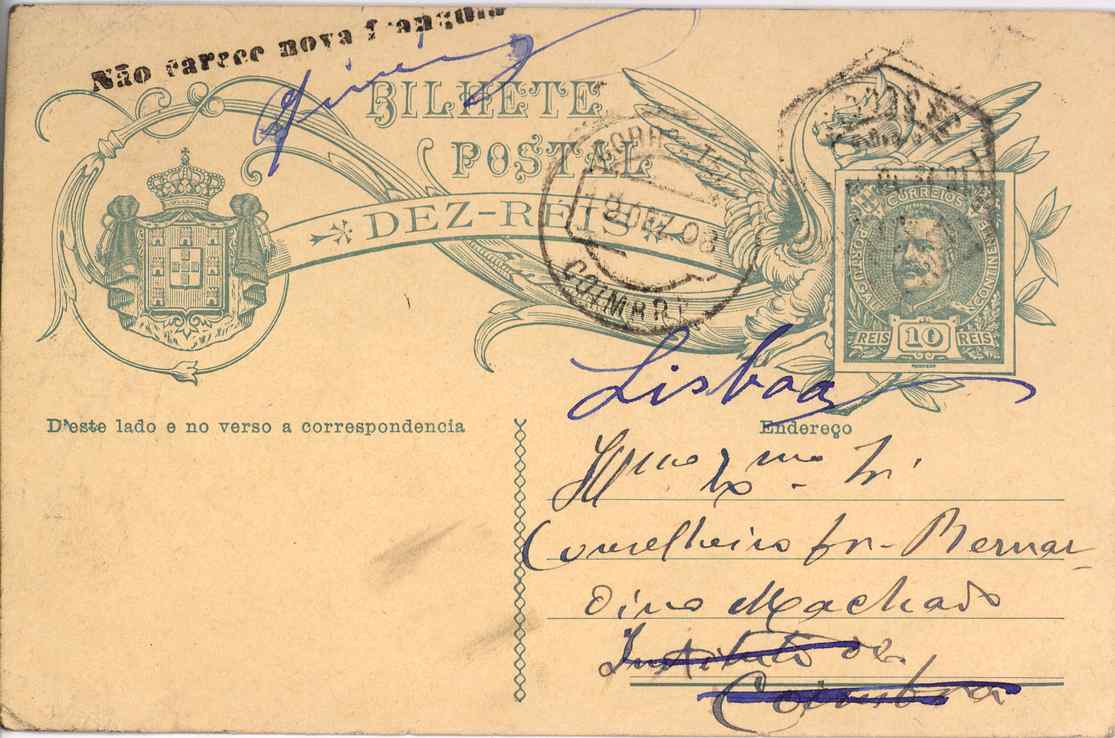 Não carece nova franquia
BILHETE
POSTAL
DEZ-REIS
COIMBRA
CORREIOS
PORTUGAL
REIS 10 REIS
Lisboa
D'este lado e no verso a correspondencia
Endereço
Illmo Exmo Sr
Conselheiro Dr. Bernar
dino Machado
Instituto de
Coimbra